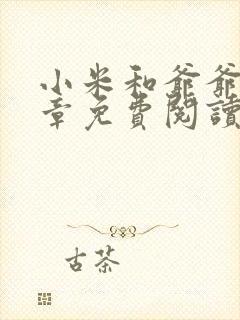 小米和爺爺
章免費閱讀
古茶